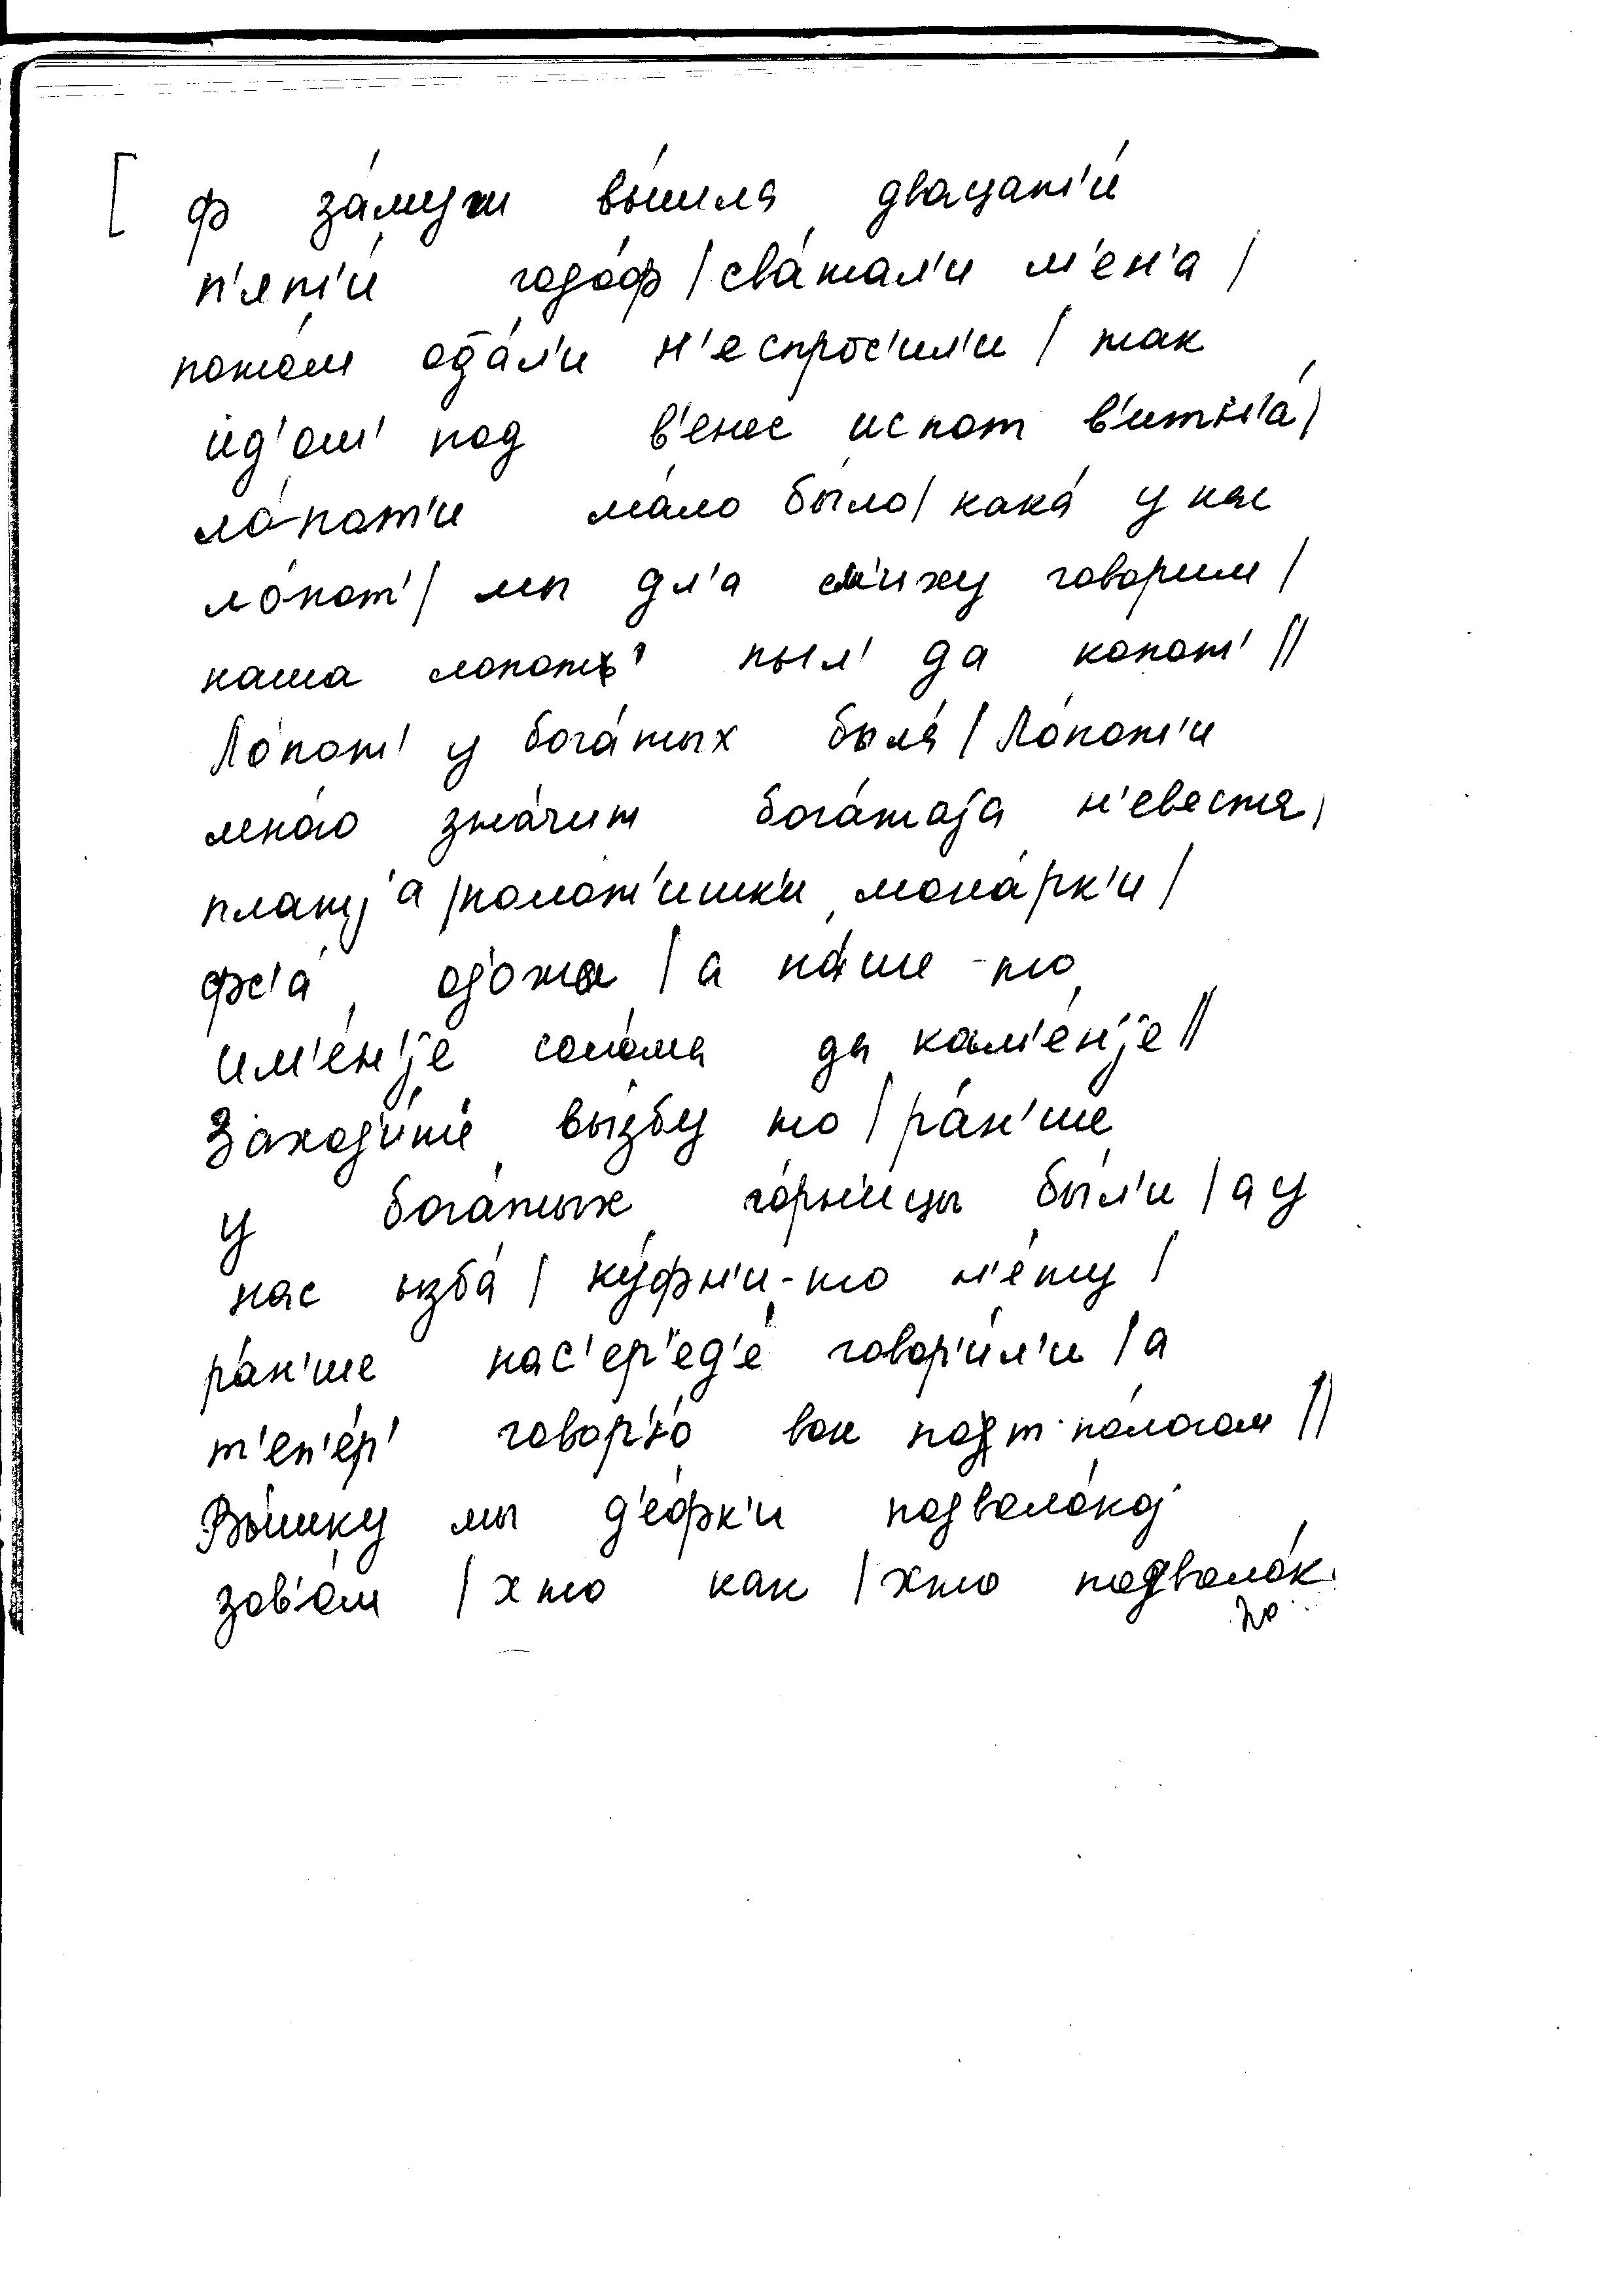 [ ф за́муж вы́шла двацат'и́
п'ят'и́ годо́ф / сва́тал'и м'ен'а /
пото́м ода́л'и н'еспрос'ил'и / так
ид'ош' под в'енес испот в'итн'а́ /
ло́пот'и ма́ло бы́ло / кака́ у нас
ло́пот' / мы дл'а см'иху говорим /
наша лопот' пыл' да копот' //
Ло́пот' у бога́тых была́ / Ло́пот'и
мно́го зна́чит бога́таjа н'евеста /
плат'j'а / полот'ишк'и мона́рк'и /
фс'а́ одо́жа / а на́ше-то
им'е́н'jе солома да кам'е́н'jе //
Заход'и́т'е вы́збу то / ра́н'ше
у бога́тых го́рн'ицы бы́л'и / а у
нас ызба́ / ку́фн'и-то н'е́ту /
ра́н'ше нас'ер'ед'е́ говор'и́л'и / а
т'еп'е́р' говор'ю́ вон под т по́логом //
Вы́шку мы д'е́фк'и подволо́коj
зов'о́м / хто как / хто подволо́к